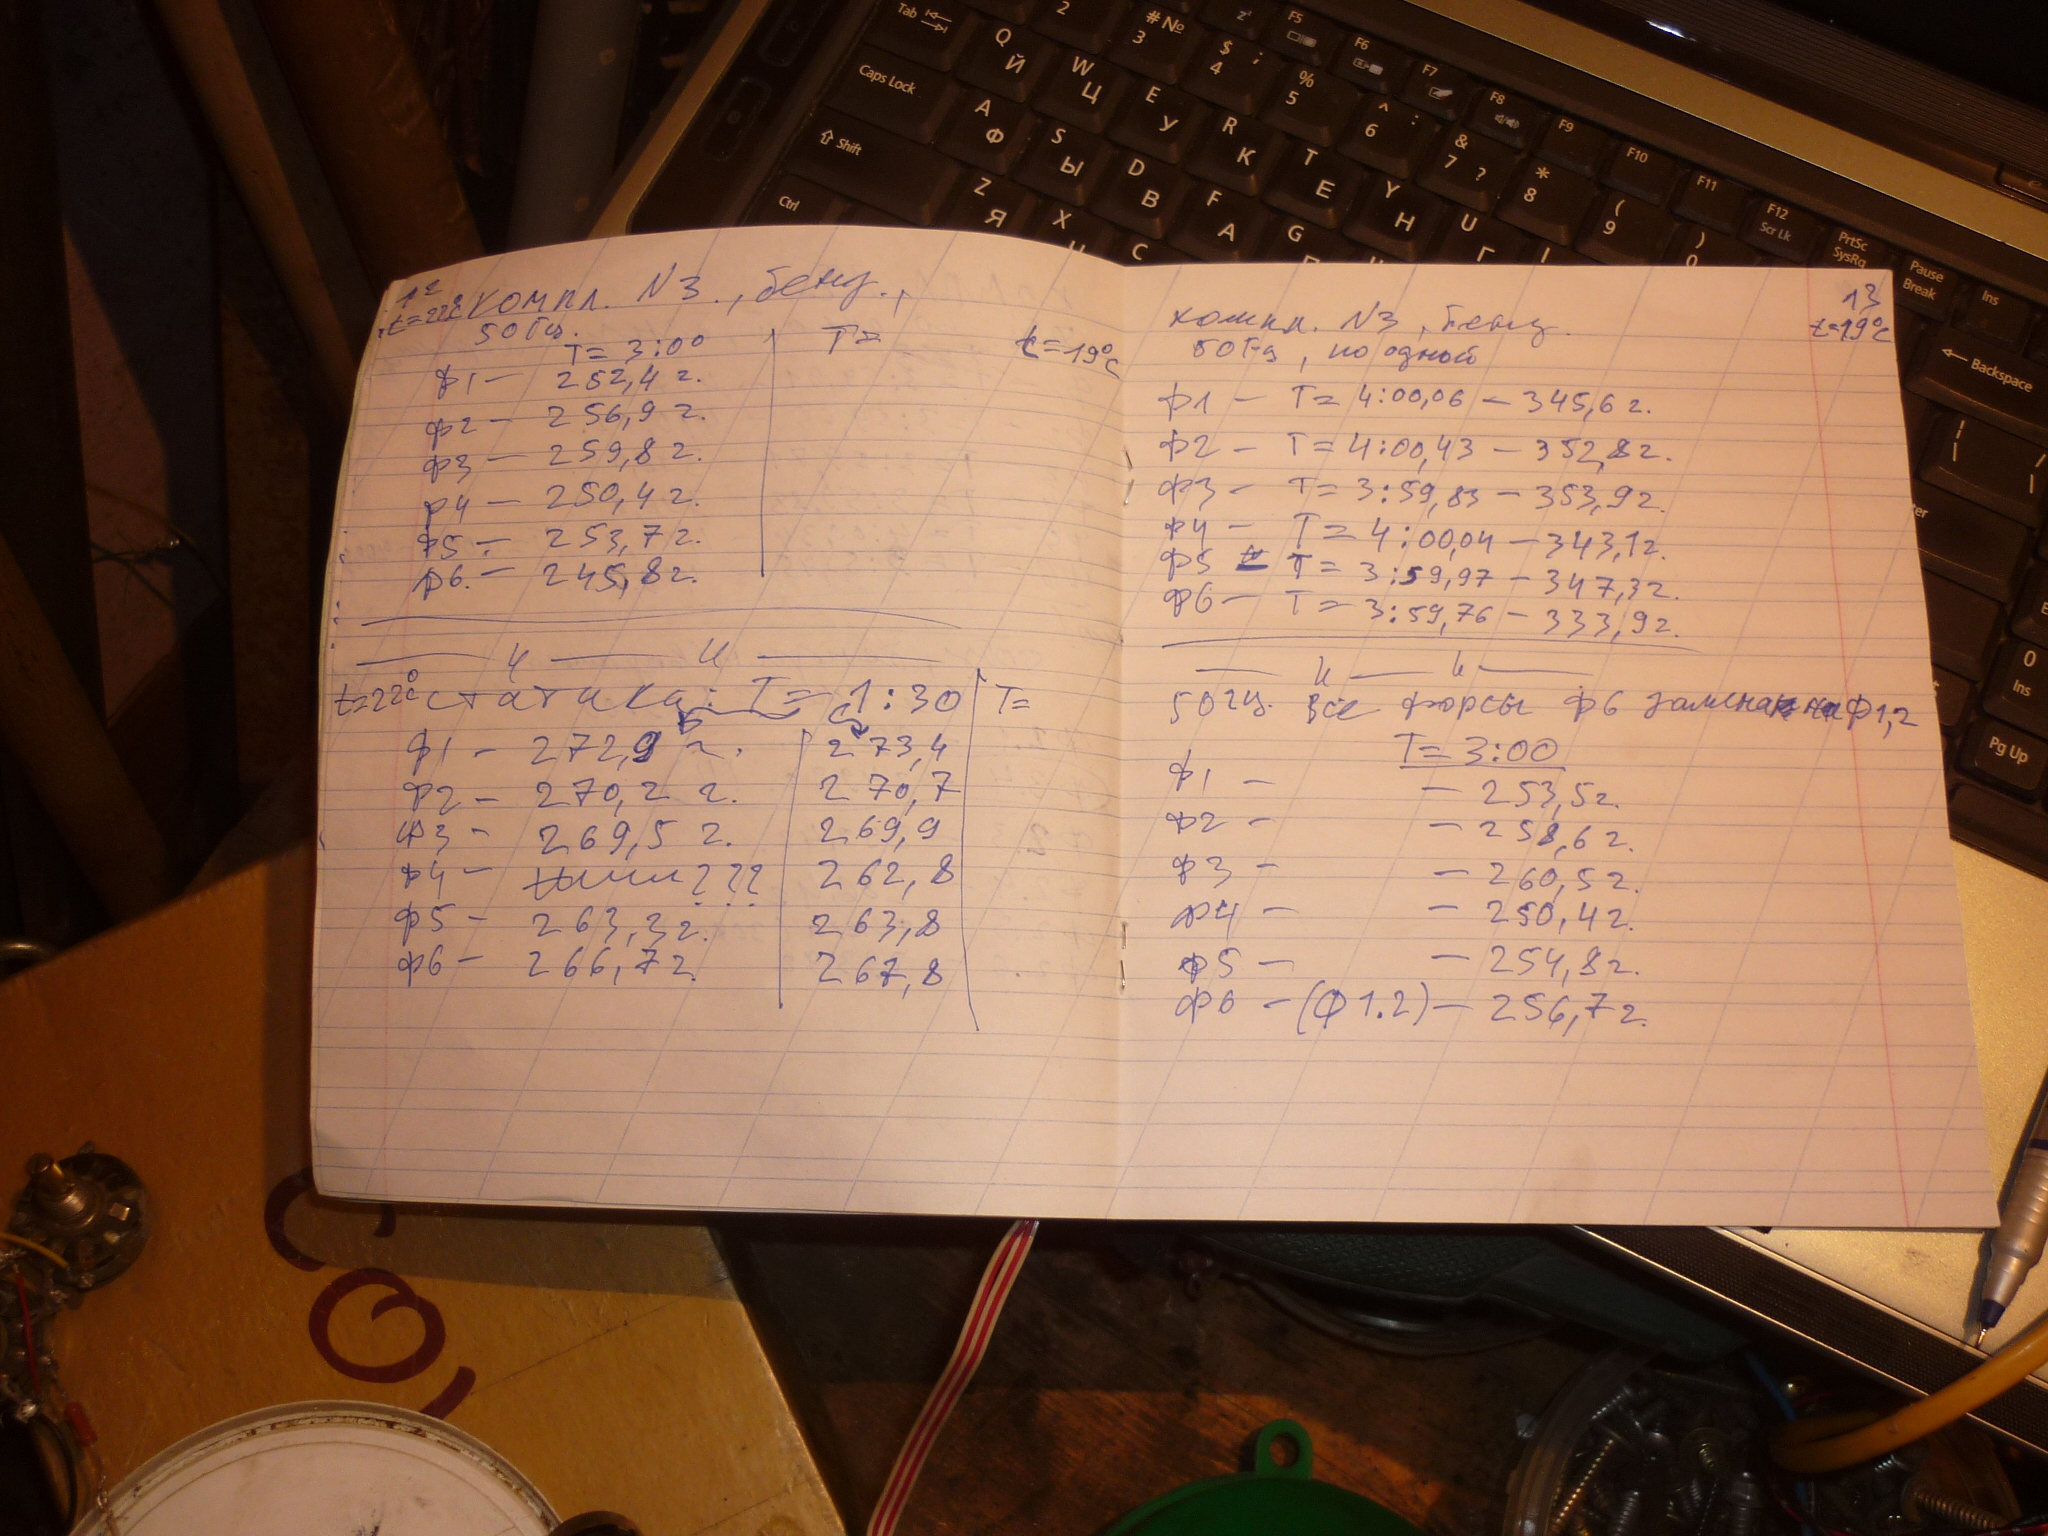 12
t=22° компл. N3., бенз.,
50 Гц.
T= 3:00
T=
t=19°C
ф1 — 252,4 г.
ф2 — 256,9 г.
ф3 — 259,8 г.
ф4 — 250,4 г.
ф5 — 253,7 г.
ф6. — 245,8 г.
— и — и —
t=22°C статика: T= 1:30
T=
ф1 - 272,9 г. 273,4
ф2 - 270,2 г. 270,7
ф3 - 269,5 г. 269,9
ф4 - ??? 262,8
ф5 - 263,3 г. 263,8
ф6 - 266,7 г. 267,8
13
t=19°C
компл. N3, бенз.
50 Гц, по одной
ф1 — T= 4:00,06 — 345,6 г.
ф2 — T= 4:00,43 — 352,8 г.
ф3 — T= 3:59,83 — 353,9 г.
ф4 — T= 4:00,04 — 343,1 г.
ф5 — T= 3:59,97 — 347,3 г.
ф6 — T= 3:59,76 — 333,9 г.
— и — и —
50 Гц. Все форсы ф6 замена на Ф1,2
T= 3:00
ф1 — — 253,5 г.
ф2 — — 258,6 г.
ф3 — — 260,5 г.
ф4 — — 250,4 г.
ф5 — — 254,8 г.
ф6 — (Ф1.2) — 256,7 г.
Tab
2
# № 3
$ ; 4
% 5
^ : 6
& 7 ?
* 8
( 9
) 0
F5
F6
F7
F8
F9
F10
F11
F12 Scr Lk
PrtSc SysRq
Pause Break
Ins
Q Й
W Ц
E У
R К
T Е
Y Н
U Г
I
Backspace
Caps Lock
A Ф
S Ы
D В
F А
G
Shift
Z Я
X
C
Ctrl
0 Ins
Pg Up